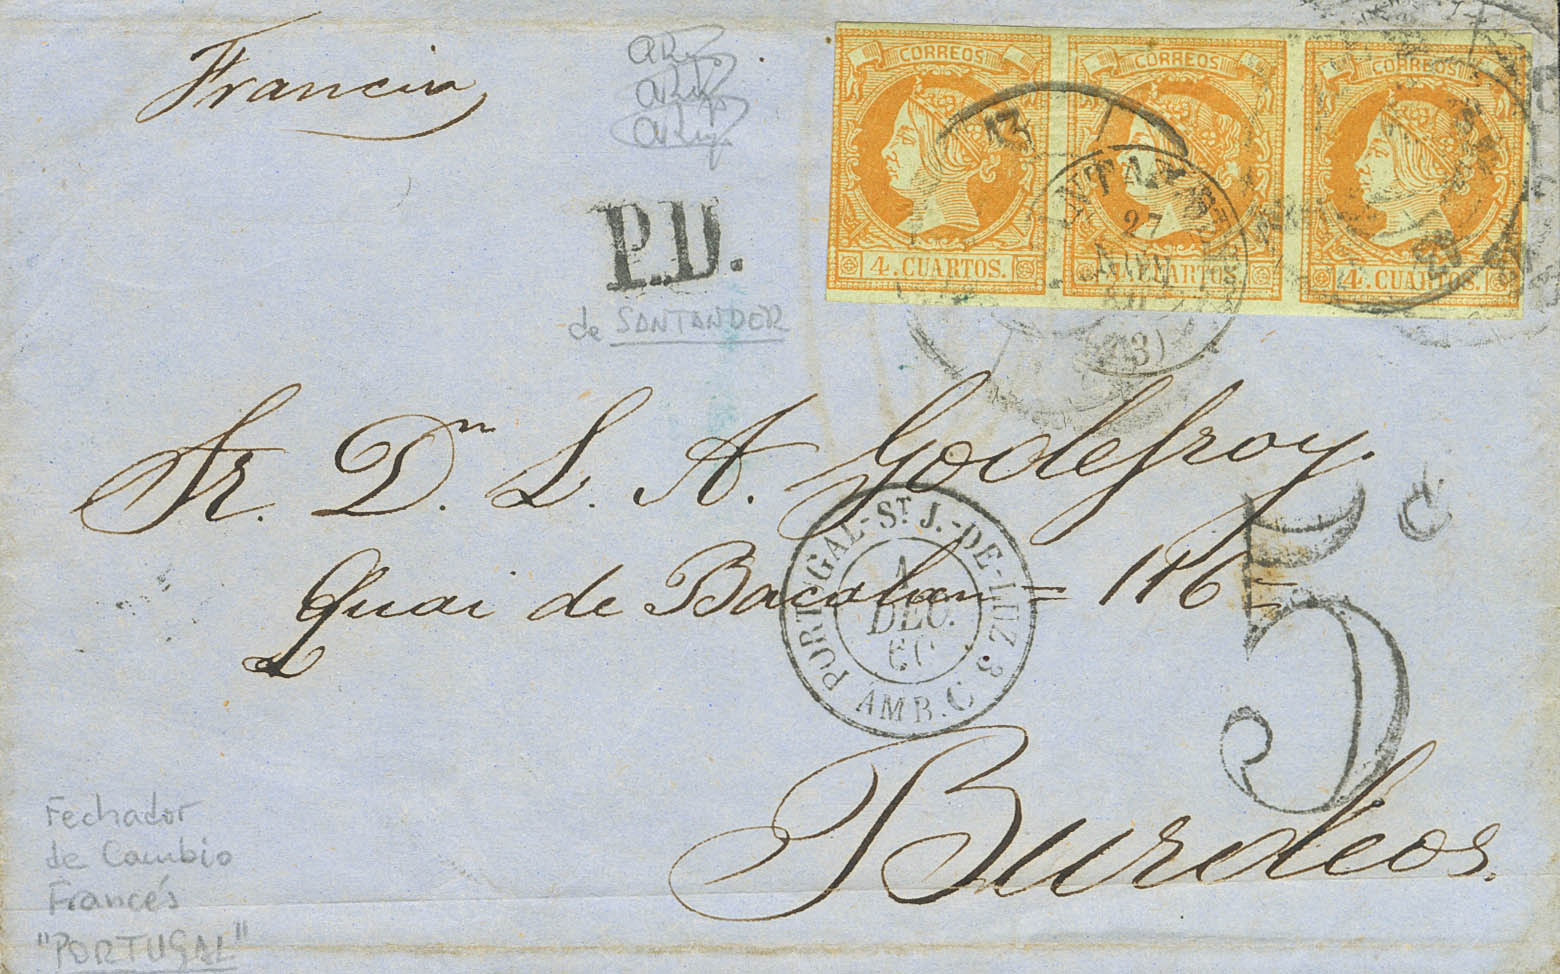 Francia
CORREOS CORREOS CORREOS
4. CUARTOS. 4. CUARTOS. 4. CUARTOS.
13
SANTANDER
27
NOV.
(13)
P.D.
de SANTANDER
Sr. Dn. L. A. Godefroy.
5 c
Quai de Bacalan = 116 =
PORTUGAL-ST. J.-DE-LUZ 3
1
DEC.
60
AMB. C
Burdeos.
Fechador
de Cambio
Francés
"PORTUGAL"